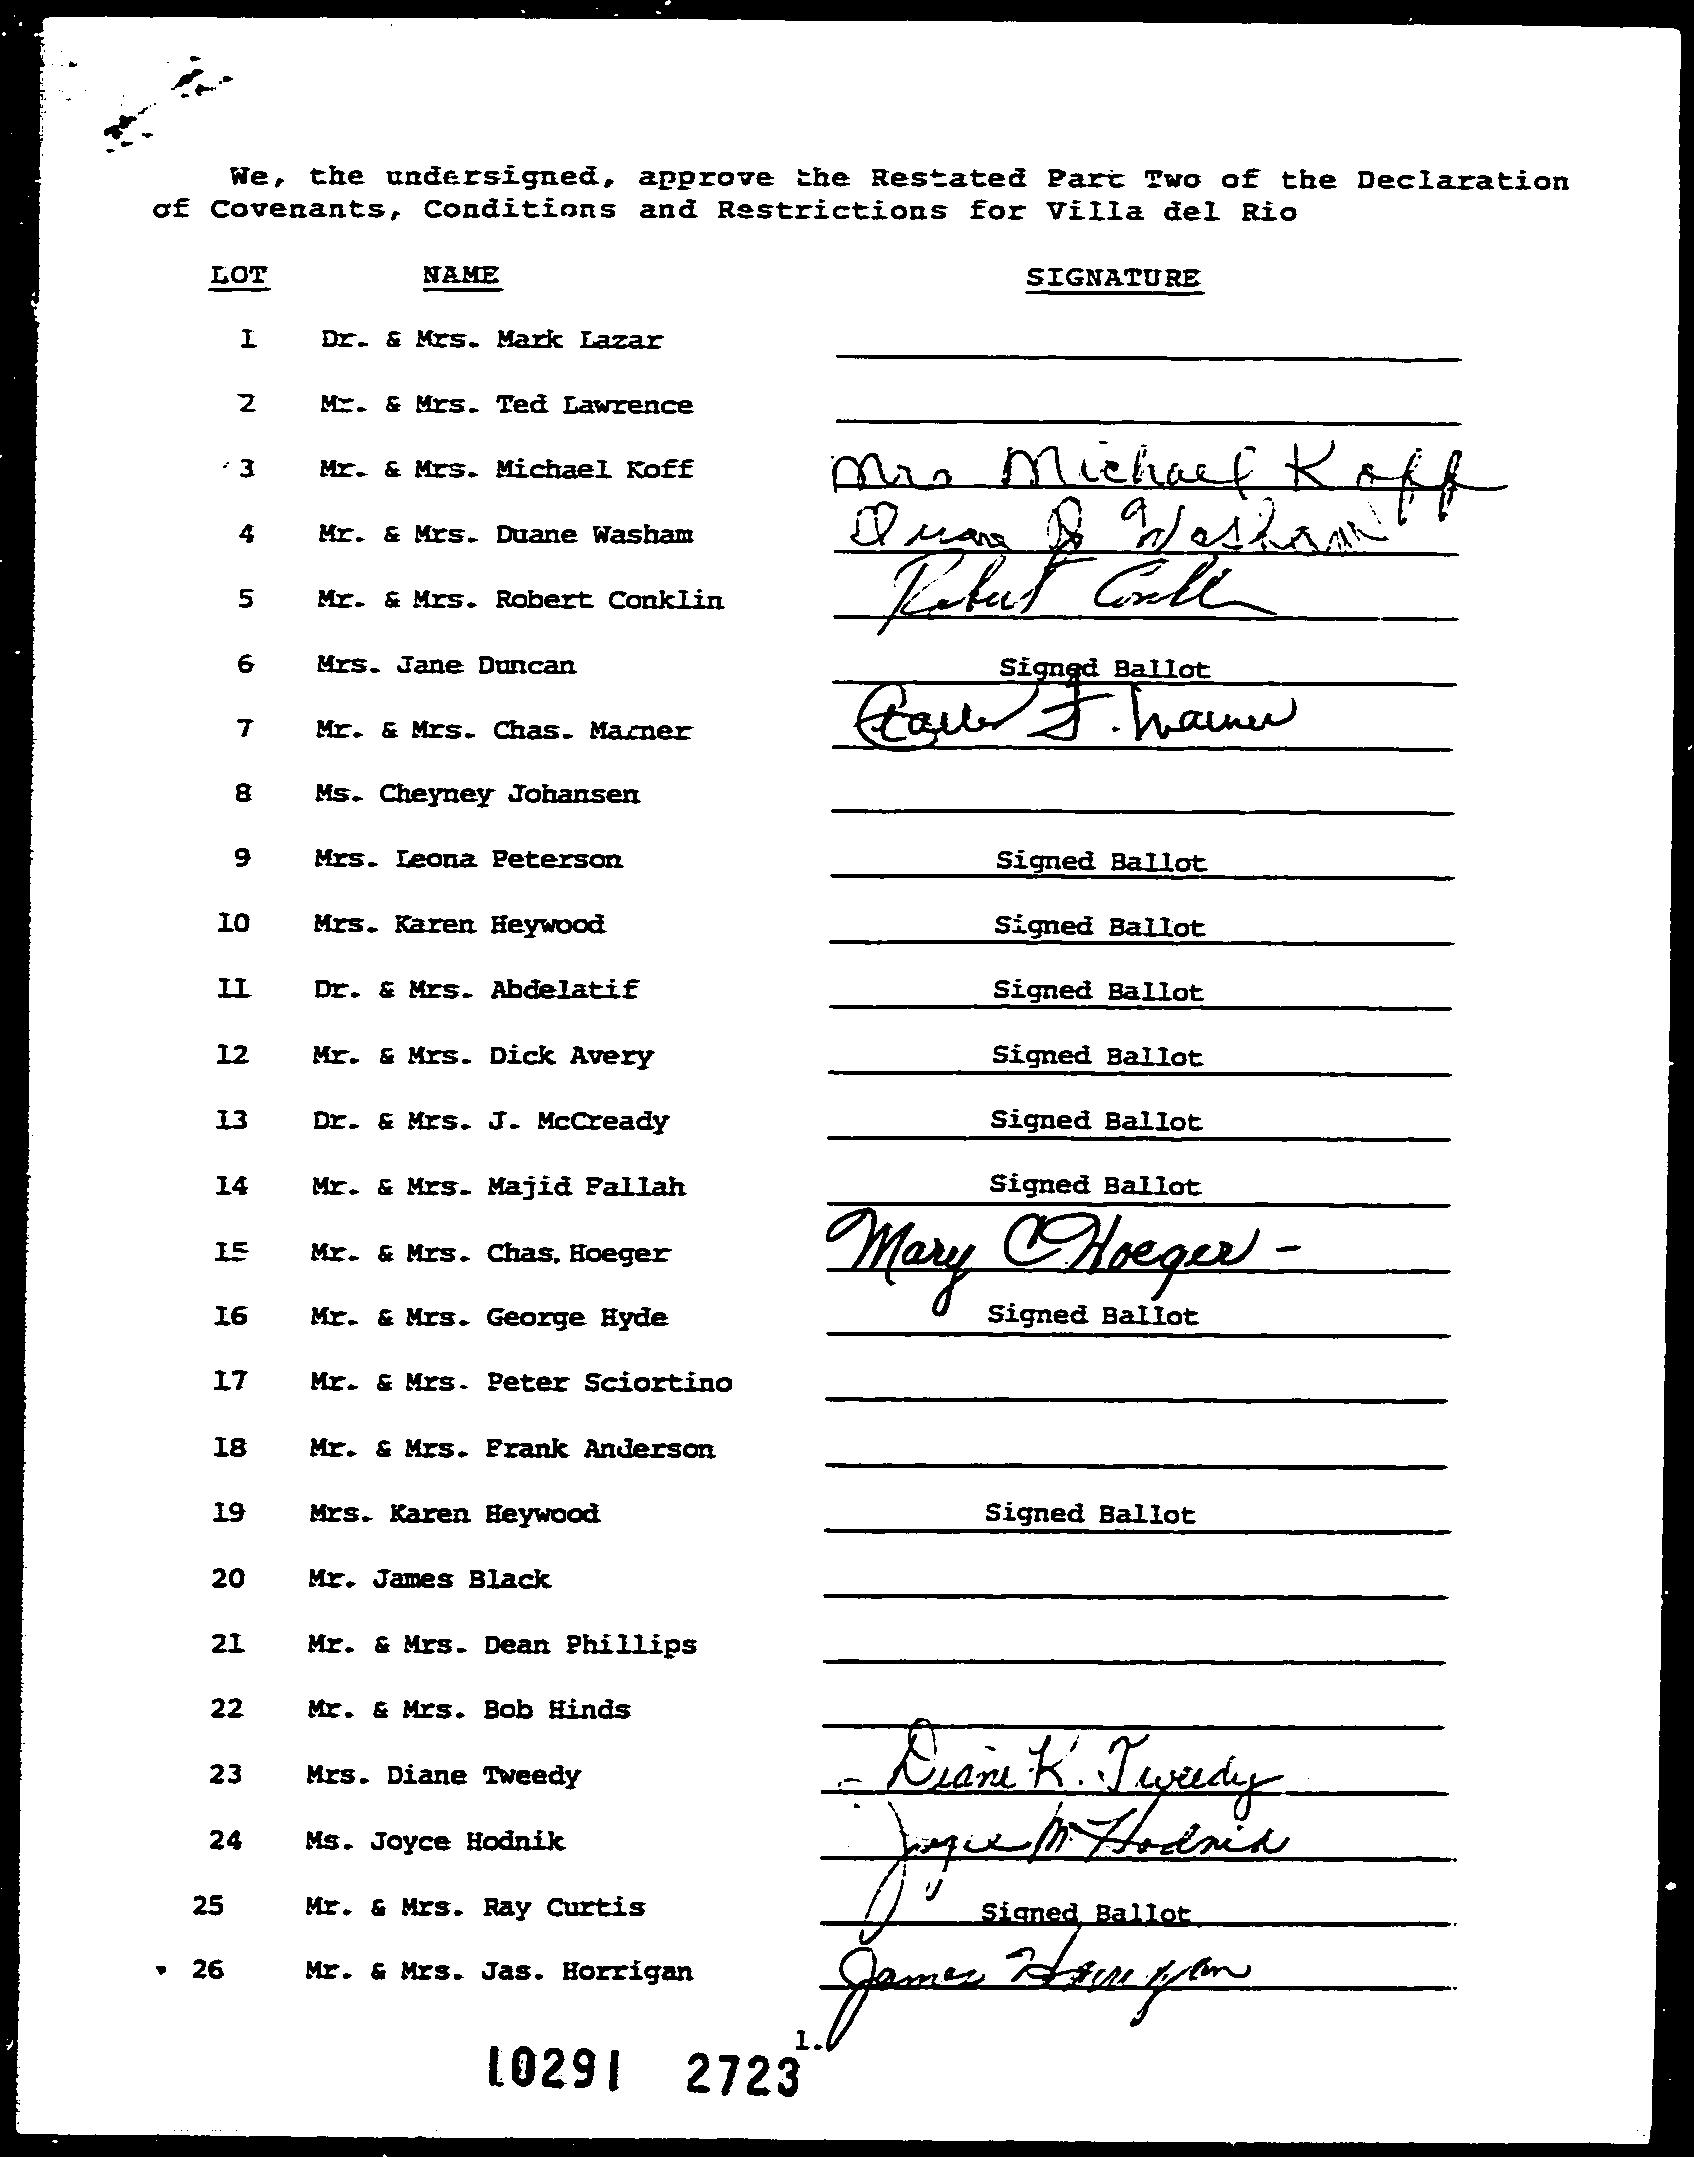 We, the undersigned, approve the Restated Part Two of the Declaration
of Covenants, Conditions and Restrictions for Villa del Rio
LOT NAME SIGNATURE
1 Dr. & Mrs. Mark Lazar
2 Mr. & Mrs. Ted Lawrence
3 Mr. & Mrs. Michael Koff Mrs Michael Koff
4 Mr. & Mrs. Duane Washam Duane D Washam
5 Mr. & Mrs. Robert Conklin Robert
6 Mrs. Jane Duncan Signed Ballot
7 Mr. & Mrs. Chas. Marner Charles F. Marner
8 Ms. Cheyney Johansen
9 Mrs. Leona Peterson Signed Ballot
10 Mrs. Karen Heywood Signed Ballot
11 Dr. & Mrs. Abdelatif Signed Ballot
12 Mr. & Mrs. Dick Avery Signed Ballot
13 Dr. & Mrs. J. McCready Signed Ballot
14 Mr. & Mrs. Majid Fallah Signed Ballot
15 Mr. & Mrs. Chas. Hoeger Mary C. Hoeger -
16 Mr. & Mrs. George Hyde Signed Ballot
17 Mr. & Mrs. Peter Sciortino
18 Mr. & Mrs. Frank Anderson
19 Mrs. Karen Heywood Signed Ballot
20 Mr. James Black
21 Mr. & Mrs. Dean Phillips
22 Mr. & Mrs. Bob Hinds
23 Mrs. Diane Tweedy Diane K. Tweedy
24 Ms. Joyce Hodnik Joyce M Hodnik
25 Mr. & Mrs. Ray Curtis Signed Ballot
26 Mr. & Mrs. Jas. Horrigan James Horrigan
1.
10291 2723